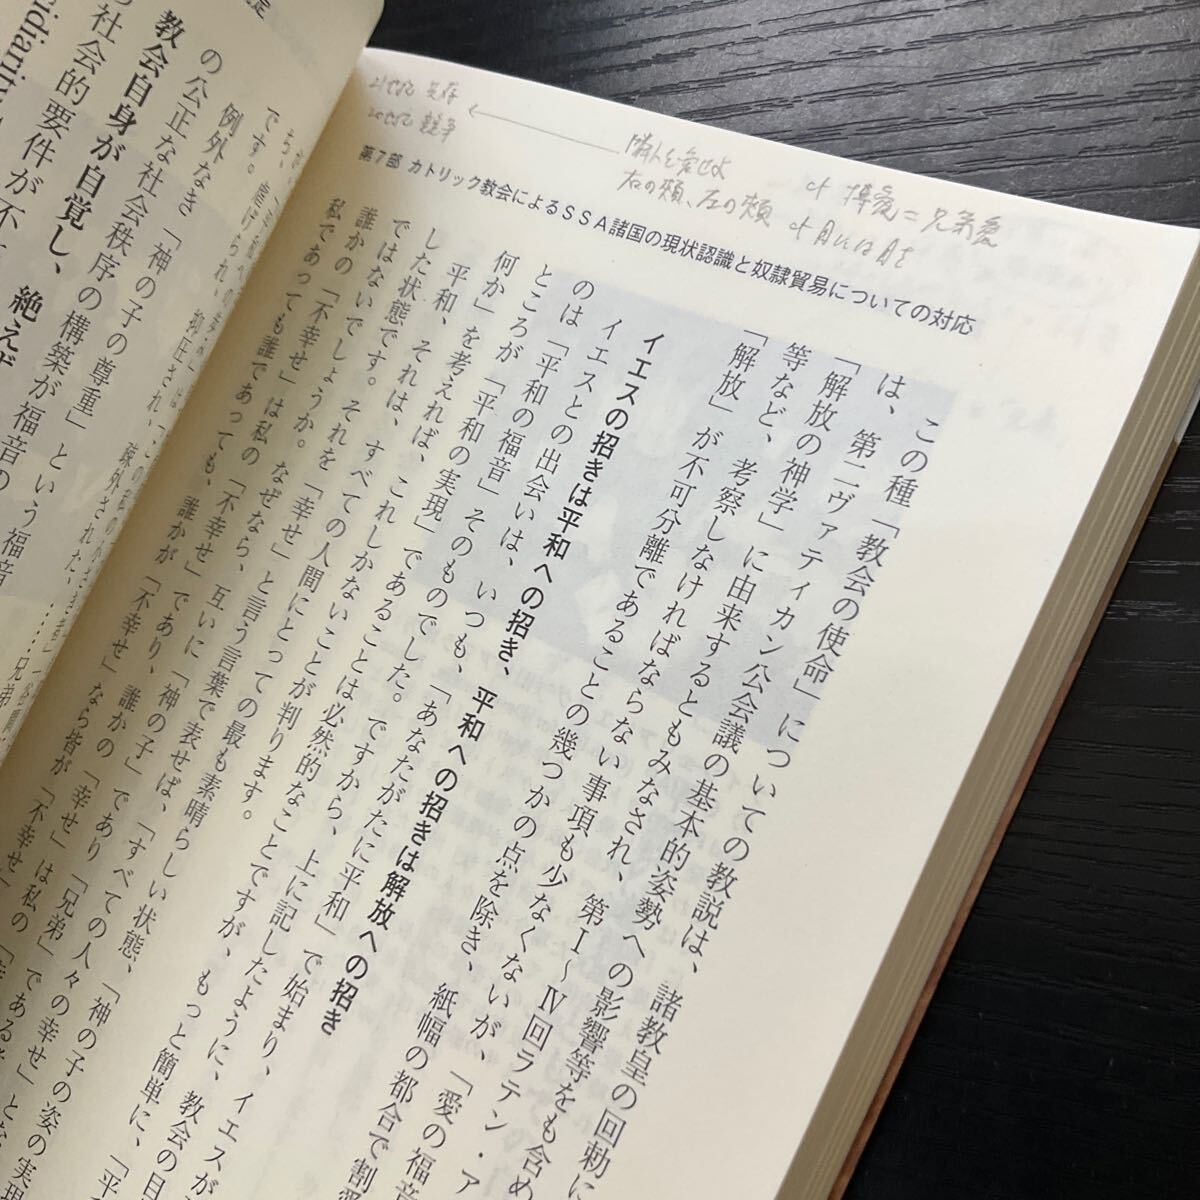 21世紀 共存
20世紀 競争
隣人を愛せよ
右の頬、左の頬
cf 博愛=兄弟愛
cf 目には目を
第7部 カトリック教会によるSSA諸国の現状認識と奴隷貿易についての対応
この種「教会の使命」についての教説は、諸教皇の回勅に
は、第二ヴァティカン公会議の基本的姿勢への影響等をも含め
「解放の神学」に由来するともみなされ、第Ⅰ~Ⅳ回ラテン・ア
等など、考察しなければならない事項も少なくないが、「愛の福音
「解放」が不可分離であることの幾つかの点を除き、紙幅の都合で割愛
イエスの招きは平和への招き、平和への招きは解放への招き
イエスとの出会いは、いつも、「あなたがたに平和」で始まり、イエスが
のは「平和の福音」そのものでした。ですから、上に記したように、教会の目
ところが「平和の実現」であることは必然的なことですが、もっと簡単に、「平
何か」を考えれば、これしかないことが判ります。
平和、それは、すべての人間にとっての最も素晴らしい状態、「神の子の姿の実現
した状態です。それを「幸せ」と言う言葉で表せば、「すべての人々の幸せ」とな
ではないでしょうか。なぜなら、互いに「神の子」であり「兄弟」である
誰かの「不幸せ」は私の「不幸せ」であり、誰かの「幸せ」は私の
私であっても誰であっても、誰かが「不幸せ」なら皆が「不幸せ」
です。
例外なき「神の子の尊重」という福音
の公正な社会秩序の構築が福音の
教会自身が自覚し、絶えず
社会的要件が不